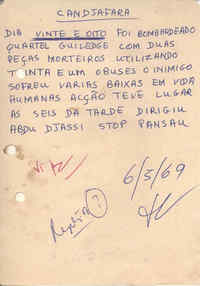 CANDJAFARA
DIA VINTE E OITO FOI BOMBARDEADO
QUARTEL GUILEDGE COM DUAS
PEÇAS MORTEIROS UTILIZANDO
TRINTA E UM OBUSES O INIMIGO
SOFREU VARIAS BAIXAS EM VIDA
HUMANAS ACÇÃO TEVE LUGAR
AS SEIS DA TARDE DIRIGIU
ABDU DJASSI STOP PANSAU
6/5/69